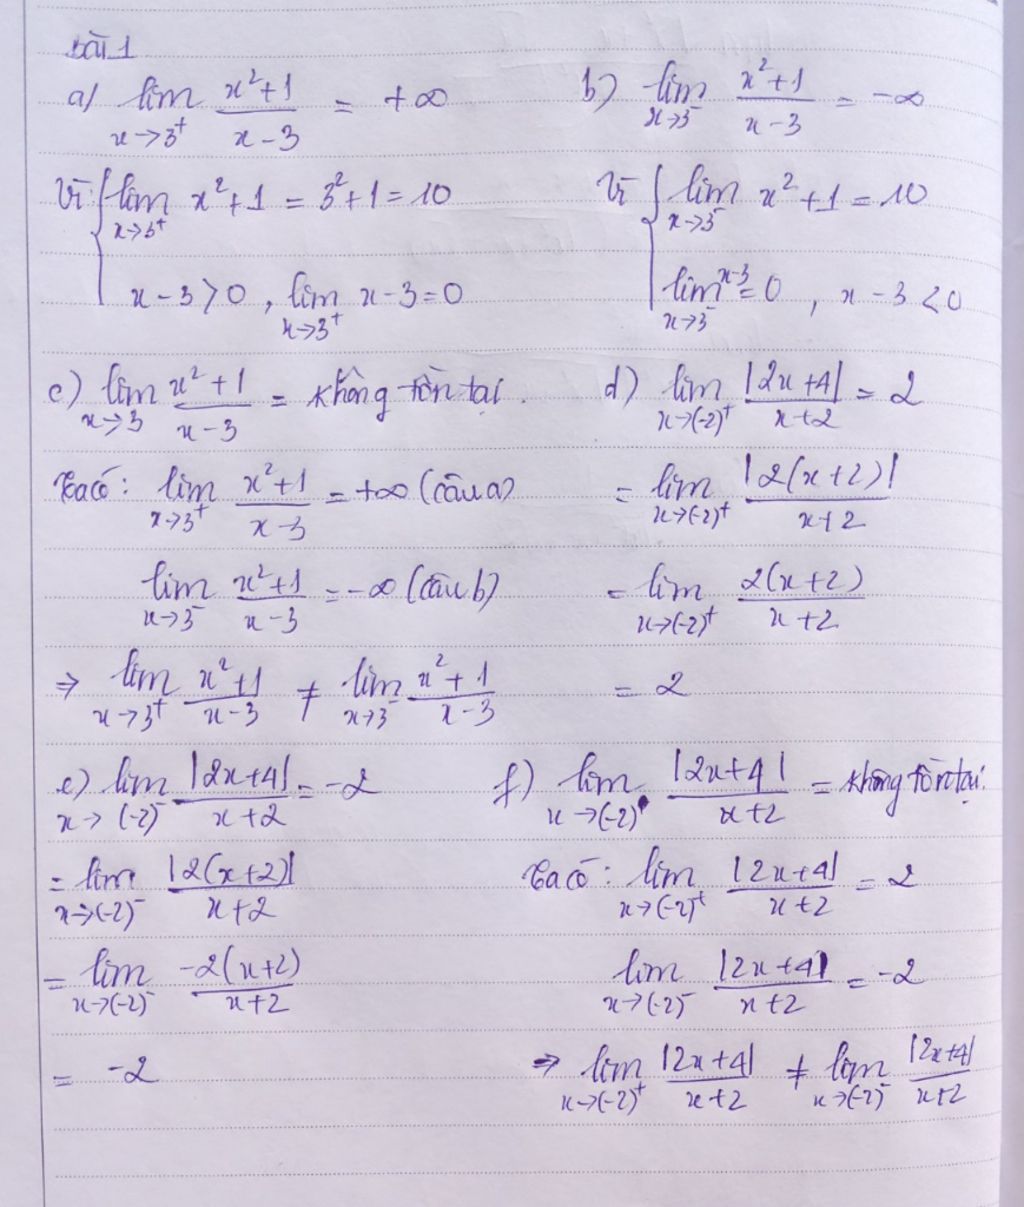 bài 1
a) lim x→3⁺ (x²+1)/(x-3) = +∞
Vì { lim x→3⁺ x²+1 = 3²+1 = 10
x-3>0, lim x→3⁺ x-3=0
b) lim x→3⁻ (x²+1)/(x-3) = -∞
Vì { lim x→3⁻ x²+1 = 10
lim x→3⁻ x-3 = 0, x-3<0
c) lim x→3 (x²+1)/(x-3) = không tồn tại.
Ta có: lim x→3⁺ (x²+1)/(x-3) = +∞ (câu a)
lim x→3⁻ (x²+1)/(x-3) = -∞ (câu b)
⇒ lim x→3⁺ (x²+1)/(x-3) ≠ lim x→3⁻ (x²+1)/(x-3)
d) lim x→(-2)⁺ |2x+4|/(x+2) = 2
= lim x→(-2)⁺ |2(x+2)|/(x+2)
= lim x→(-2)⁺ 2(x+2)/(x+2)
= 2
e) lim x→(-2)⁻ |2x+4|/(x+2) = -2
= lim x→(-2)⁻ |2(x+2)|/(x+2)
= lim x→(-2)⁻ -2(x+2)/(x+2)
= -2
f) lim x→(-2) |2x+4|/(x+2) = không tồn tại.
Ta có: lim x→(-2)⁺ |2x+4|/(x+2) = 2
lim x→(-2)⁻ |2x+4|/(x+2) = -2
⇒ lim x→(-2)⁺ |2x+4|/(x+2) ≠ lim x→(-2)⁻ |2x+4|/(x+2)